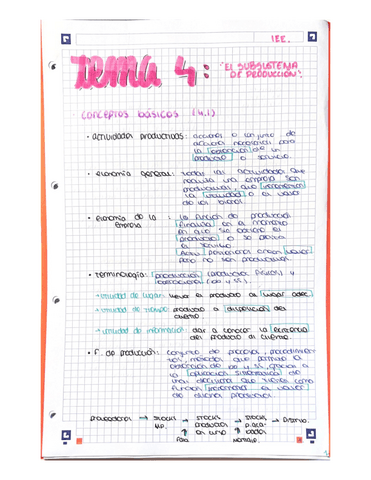 IEE.
Tema 4: "El subsistema
de producción".
Conceptos básicos (4.1)
· actividades productivas: acciones o conjunto de
acciones necesarias para
la obtención de un
producto o servicio.
· economía general: todas las actividades que
realiza una empresa son
productivas, que incrementan
la utilidad o el valor
de los bienes
· economía de la : la función de producción
empresa finaliza en el momento
en que se obtiene el
producto o se presta
el servicio.
posteriores crean valor
pero no son productivas
· terminología: producción (productos físicos) y
→ utilidad de lugar: lleva el producto al lugar
→ utilidad de tiempo: producto a disposición del
cliente
→ utilidad de información: dar a conocer la existencia
del producto al cliente.
· F. de producción: conjunto de procesos, procedimien-
tos, métodos que permiten la
obtención de gracias a
la aplicación sistemática de
unas decisiones que tienen como
función incrementar el valor
de dichos
Proveedores → stocks → stocks → stocks → Distrib.
M.P. productos
en curso